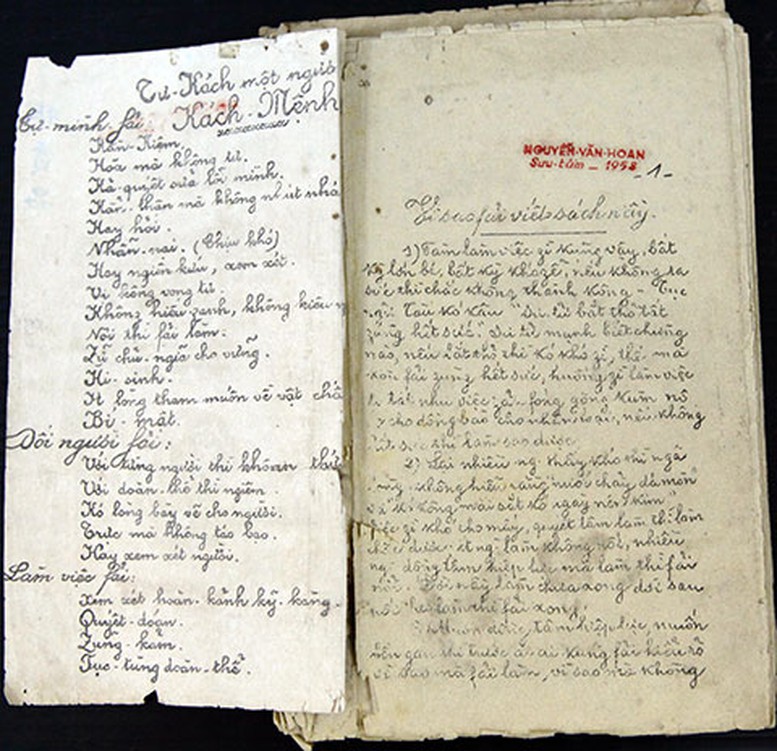 Tư-Kách một người
Kách-Mệnh
Tự-mình fải
Kần-Kiệm.
Hòa mà không tư.
Kả-quyết sửa lỗi mình.
Kẩn-thận mà không nhút nhá
Hay hỏi.
Nhẫn-nại. (Chịu khó)
Hay ngiên kứu, xem xét.
Vị kông vong tư.
Không hiếu zanh, không kiêu ng
Nói thì fải làm.
Zữ chủ-ngĩa cho vững.
Hi-sinh.
Ít lòng tham muốn về vật chấ
Bí-mật.
Đối người fải:
Với từng người thì khoan thứ
Với đoàn-thể thì ngiêm.
Kó lòng bày vẽ cho người.
Trực mà không táo bạo.
Hay xem xét người.
Làm việc fải:
Xem xét hoàn-kảnh kỹ-kàng.
Quyết-đoán.
Zũng-kảm.
Fục-tùng đoàn-thể.
NGUYỄN-VĂN-HOAN
Sưu-tầm _ 1958
-1-
Vì sao fải viết sách nầy.
1) Fàm làm việc gì kũng vậy, bất
kỳ lớn bé, bất kỳ khó zễ, nếu không ra
sức thì chắc không thành kông - Tục
ngữ Tàu kó kâu "Sư tử bắt thỏ tất
zùng hết sức" Sư tử mạnh biết chừng
nào, nếu bắt thỏ thì kó khó gì, thế mà
kòn fải zùng hết sức, huống gì làm việc
to tát như việc zải-fóng gông kùm nô
lệ cho đồng bào cho nhân loại, nếu không
hết sức thì làm sao được.
2) Lại nhiều ng. thấy khó thì ngã
lòng không hiểu rằng "nước chảy đá mòn"
và "kó kông mài sắt kó ngày nên kim"
Việc gì khó cho mấy, quyết tâm làm thì làm
chắc được. ít ng. làm không nổi, nhiều
ng. đồng tâm hiệp lực mà làm thì fải
nổi. Đời này làm chưa xong đời sau
nối theo làm thì fải xong.
3) Muốn được tâm hiệp lực, muốn
bền gan thì trước là ai kũng fải hiểu rõ
vì sao mà fải làm, vì sao mà không